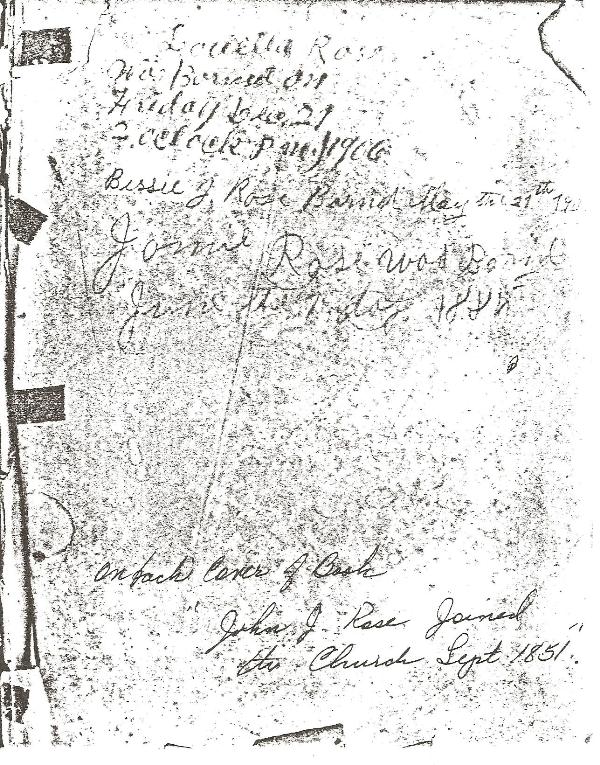 Louella Rose
Was Bornd on
Friday Dec. 21
2.oclock P m. 1906
Bessie J Rose Bornd May the 21th 19
Jomie Rose was Bornd
June the 1 day 1888
on back Cover of Book
" John J. Rose Joined
the Church Sept. 1851. "